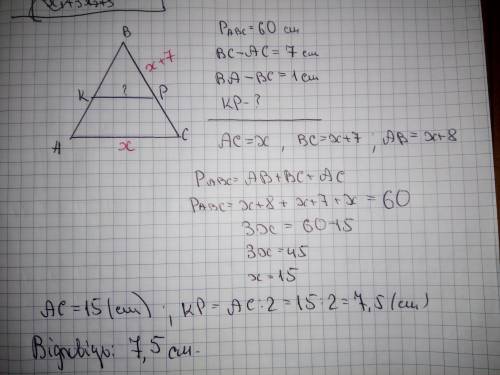 B
x+7
K ? P
A x C
P_ABC = 60 см
BC-AC = 7 см
BA-BC = 1 см
KP-?
AC=x, BC=x+7; AB=x+8
P_ABC = AB+BC+AC
P_ABC = x+8+x+7+x = 60
3x = 60-15
3x = 45
x = 15
AC=15 (см); KP=AC:2=15:2=7,5 (см)
Відповідь: 7,5 см.